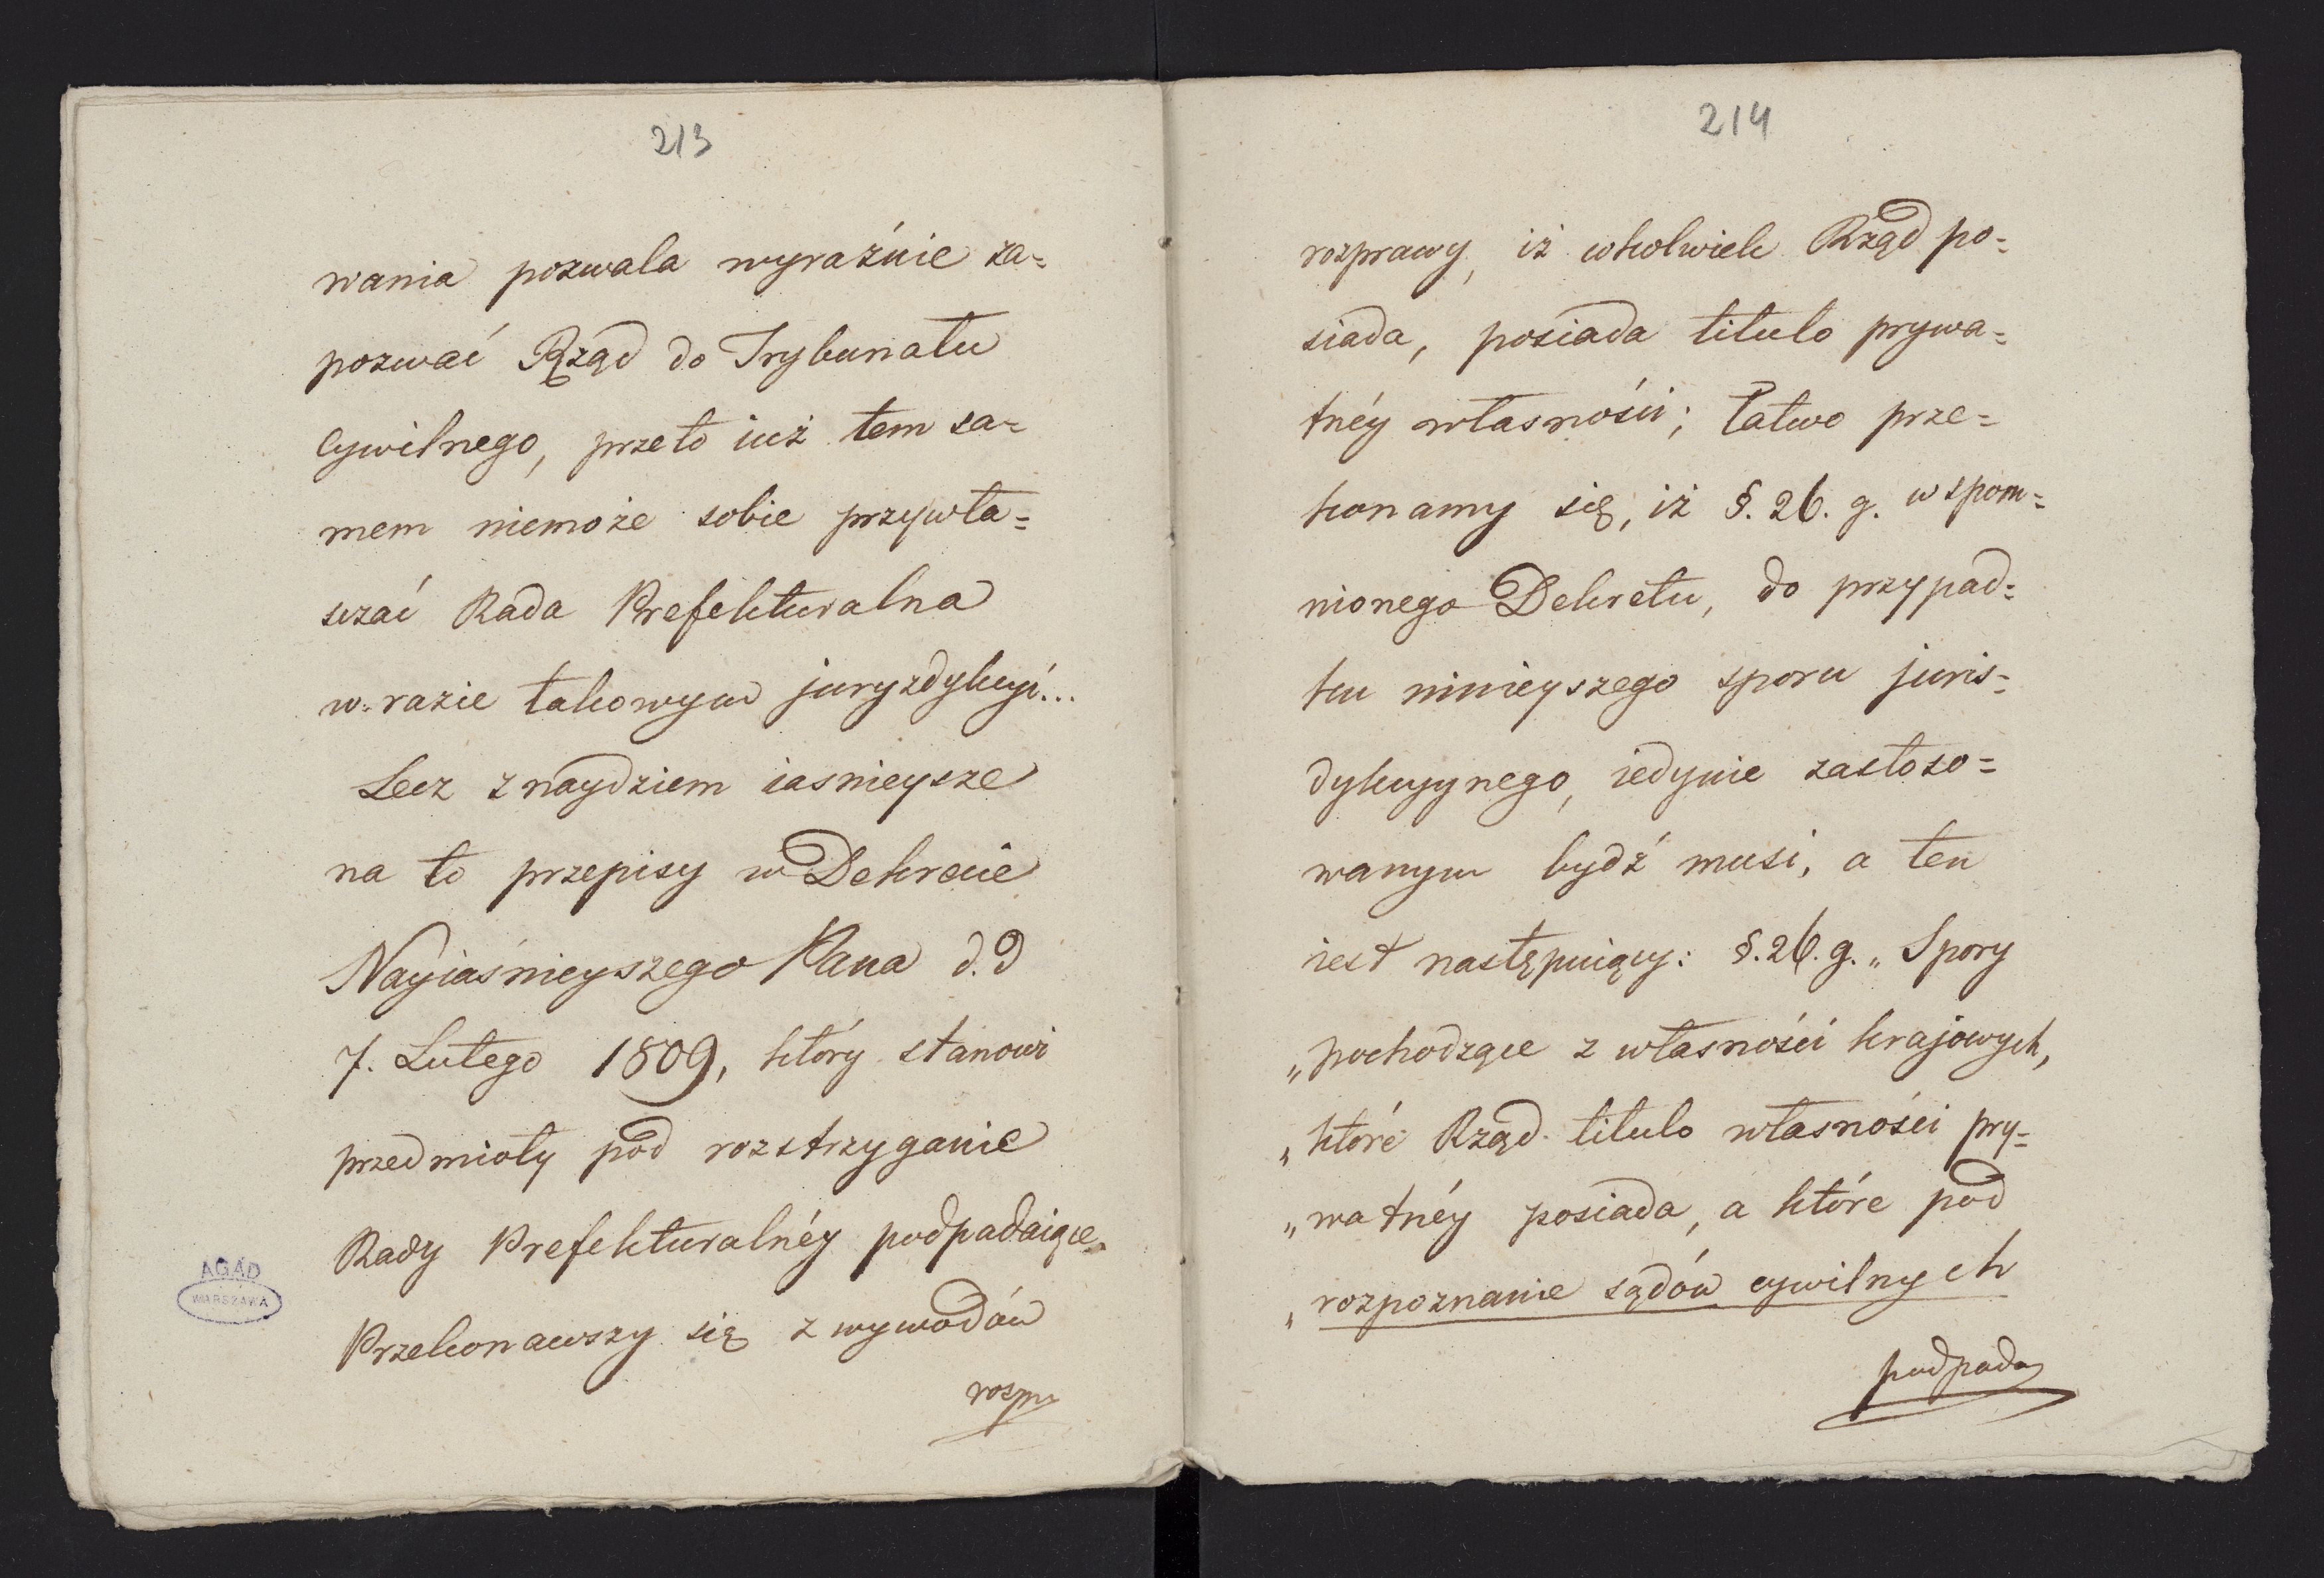 213
wania pozwala wyraźnie za=
pozwać Rząd do Trybunatu
Cywilnego, przeto iuż tem sa=
mem niemoże sobie przywła=
szczać Rada Prefekturalna
w razie takowym juryzdykcyi...
Lecz znaydziem iasnieysze
na to przepisy w Dekrecie
Nayiaśnieyszego Pana d. d
7. Lutego 1809, który stanowi
przedmioty pod rozstrzyganie
Rady Prefekturalnéy podpadaiące.
Przekonawszy się z wywodów
rozpr
AGAD
WARSZAWA
214
rozprawy, iż cokolwiek Rząd po=
siada, posiada titulo prywa=
tnéy własności; łatwo prze=
konamy się, iż §. 26. g. wspom=
nionego Dekretu, do przypad=
ku ninieyszego sporu juris=
dykcyynego, iedynie zastoso=
wanym bydź musi, a ten
iest następuiący: §. 26. g. „Spory
„pochodzące z własności krajowych,
„które Rząd titulo własności pry=
„watnéy posiada, a które pod
„rozpoznanie sądów cywilnych
podpada